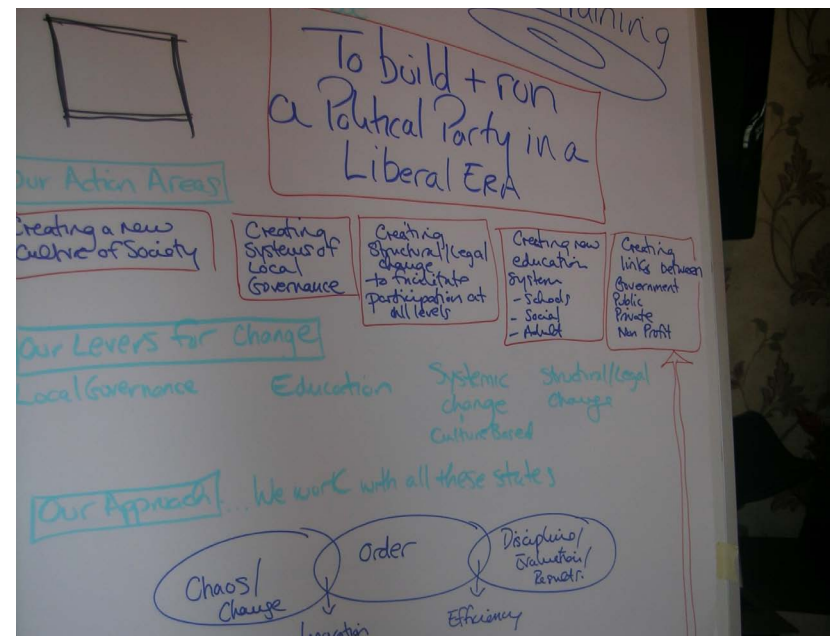 Training
To build + run
a Political Party in a
Liberal ERA
Our Action Areas
Creating a new
Culture of Society
Creating
Systems of
Local
Governance
Creating
Structural/Legal
change
to facilitate
participation at
all levels
Creating new
education
System
- Schools
- Social
- Adult
Creating
links between
Government
Public
Private
Non Profit
Our Levers for Change
Local Governance
Education
Systemic
change
Culture Based
Structural/Legal
Change
Our Approach ... We work with all these states
Chaos/
Change
Order
Discipline/
Evaluation/
Results.
Innovation
Efficiency